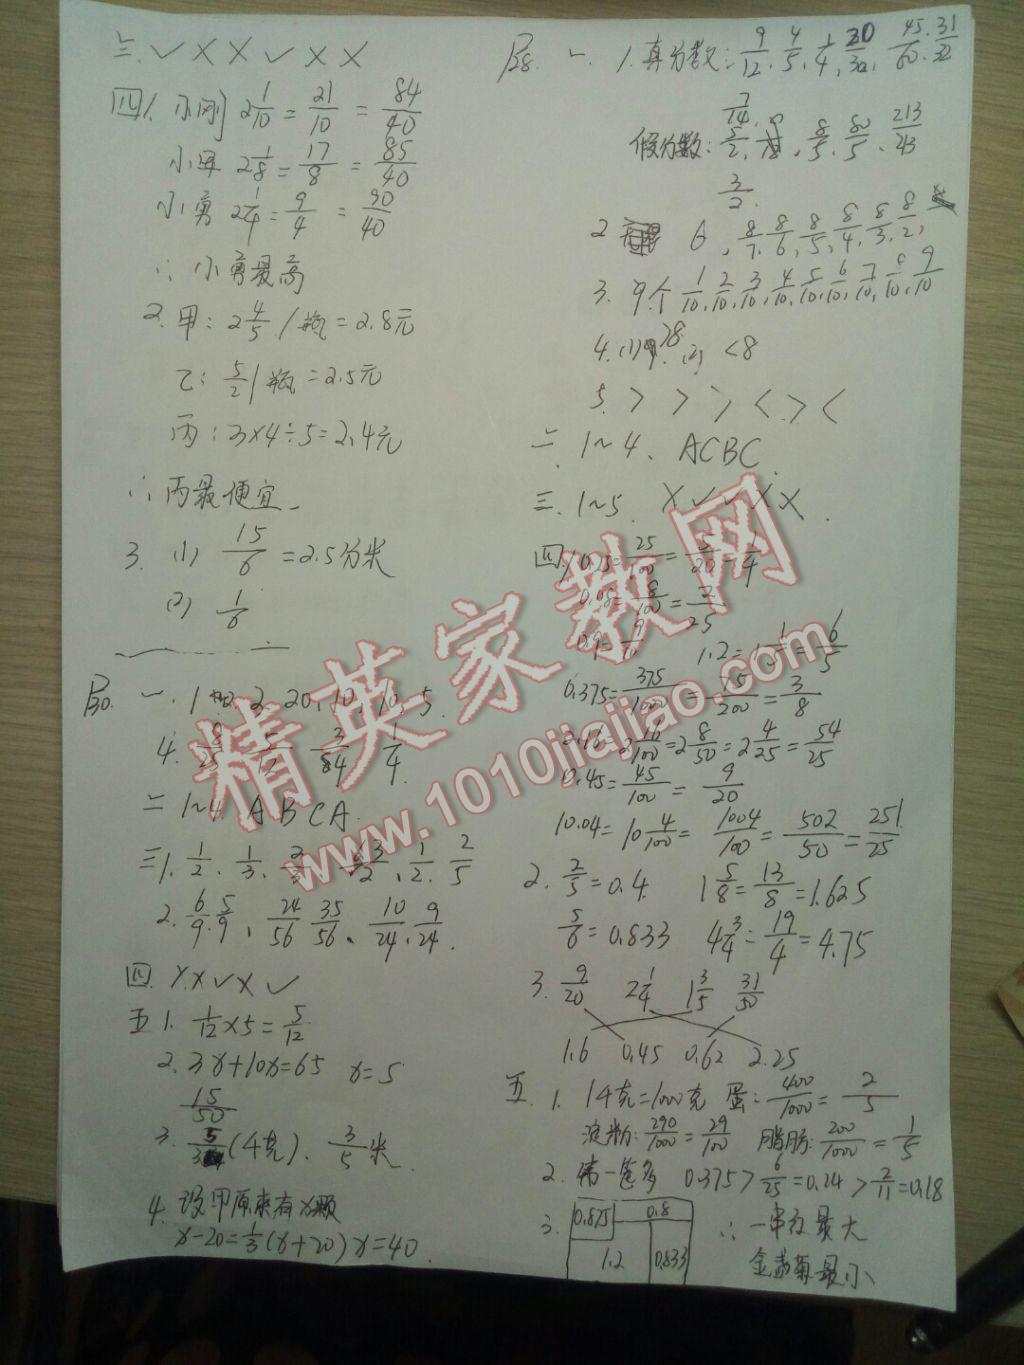 三. ✓ × × ✓ × ×
四1. 小刚 2 1/10 = 21/10 = 84/40
2 1/8 = 17/8 = 85/40
小勇 2 1/4 = 9/4 = 90/40
∴ 小勇最高
2. 甲: 2 4/5 /瓶 = 2.8元
乙: 5/2 /瓶 = 2.5元
丙: 3×4÷5 = 2.4元
∴ 丙最便宜
3. (1) 15/6 = 2.5分米
(2) 1/6
二 1~4 A B C A.
三1. 1/2、1/3、 1/2. 2/5
2. 6/9. 5/9、24/56 35/56、10/24. 9/24.
四. × × ✓ × ✓
五 1. 1/12 × 5 = 5/12
2. 3x+10x=65 x=5
15/50
3. (4克)、3/5米
4. 设甲原来有x颗
x-20=1/3(x+20) x=40.
一、1. 真分数: 9/12. 4/5. 1/4. 30/32. 45/60. 31/32
7/14.
假分数: 5/2. 8/5. 80/5. 213/213
3/2.
2. 6, 8/7. 8/6. 8/5. 8/4. 8/3. 8/2.
3. 9个 1/10. 2/10. 3/10. 4/10. 5/10. 6/10. 7/10. 8/10. 9/10
4. (1) >8. (2) <8
5. > > > < > <
二. 1~4、ACBC.
三. 1~5. × ✓ ✓ × ×.
四 1. 0.75 =
0.08 = 8/100 = 2/25
0.9 = 9/10 1.2 = 1 1/5 = 6/5
0.375 = 375/1000 = 75/200 = 3/8
2.16 = 2 16/100 = 2 8/50 = 2 4/25 = 54/25
0.45 = 45/100 = 9/20
10.04 = 10 4/100 = 1004/100 = 502/50 = 251/25
2. 2/5 = 0.4 1 5/8 = 13/8 = 1.625
5/6 = 0.833 4 3/4 = 19/4 = 4.75
3. 9/20 2 1/4 1 3/5 31/50
1.6 0.45 0.62 2.25
五. 1. 1千克=1000克 蛋: 400/1000 = 2/5
淀粉: 290/1000 = 29/100 脂肪: 200/1000 = 1/5
2. 第一筐多 0.375 > 6/25 = 0.24 > 2/11 = 0.18
3. 0.875 0.8 ∴ 一串红最大
1.2 0.833 金盏菊最小
精英家教网
www.1010jiajiao.com